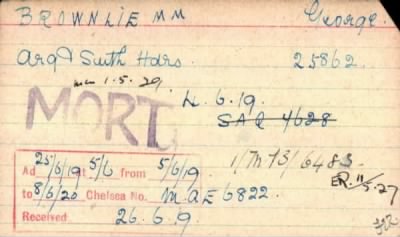 BROWNLIE MM George.
Arg & Suth Hdrs. 25862.
1.5.29.
MORT. L. 6.19.
SAQ 4628
1/MB/6483
Ad 25/6/19 at 5/6 from 5/6/19. ER. 11/5.27
to 8/6/20 Chelsea No. M.AE 6822.
Received 26.6.9.